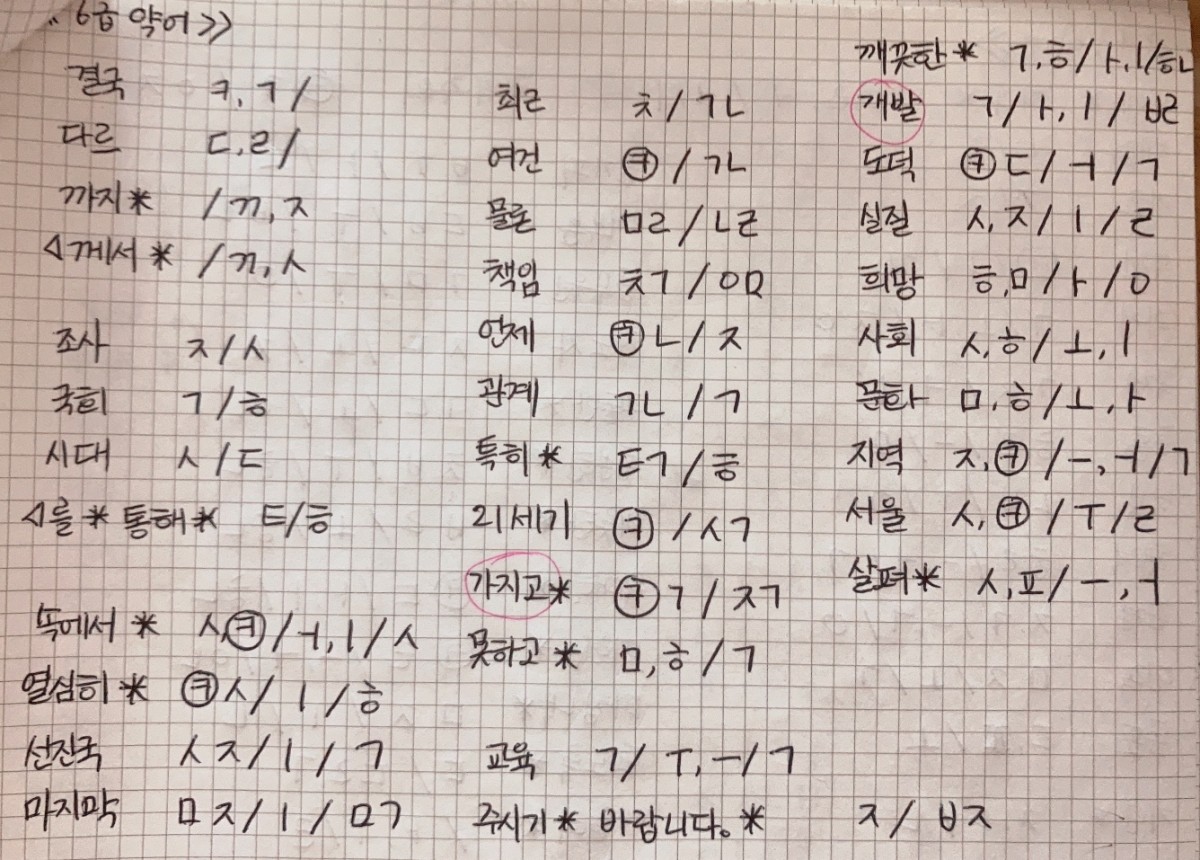 ≪ 6급 약어≫
결국 ㅋ,ㄱ/
다르 ㄷ,ㄹ/
까지* /ㄲ,ㅈ
◁께서* /ㄲ,ㅅ
조사 ㅈ/ㅅ
국회 ㄱ/ㅎ
시대 ㅅ/ㄷ
◁를* 통해* ㅌ/ㅎ
속에서* ㅅ㉪/ㅓ,ㅣ/ㅅ
열심히* ㉪ㅅ/ㅣ/ㅎ
선진국 ㅅㅈ/ㅣ/ㄱ
마지막 ㅁㅈ/ㅣ/ㅁㄱ
최근 ㅊ/ㄱㄴ
여건 ㉪/ㄱㄴ
물론 ㅁㄹ/ㄴㄹ
책임 ㅊㄱ/ㅇㅁ
언제 ㉪ㄴ/ㅈ
관계 ㄱㄴ/ㄱ
특히* ㅌㄱ/ㅎ
21세기 ㉪/ㅅㄱ
가지고* ㉪ㄱ/ㅈㄱ
못하고* ㅁ,ㅎ/ㄱ
교육 ㄱ/ㅜ,ㅡ/ㄱ
주시기* 바랍니다.* ㅈ/ㅂㅈ
깨끗한* ㄱ,ㅎ/ㅏ,ㅣ/ㅎㄴ
개발 ㄱ/ㅏ,ㅣ/ㅂㄹ
도덕 ㉪ㄷ/ㅓ/ㄱ
실질 ㅅ,ㅈ/ㅣ/ㄹ
희망 ㅎ,ㅁ/ㅏ/ㅇ
사회 ㅅ,ㅎ/ㅗ,ㅣ
문화 ㅁ,ㅎ/ㅗ,ㅏ
지역 ㅈ,㉪/ㅡ,ㅓ/ㄱ
서울 ㅅ,㉪/ㅜ/ㄹ
살펴* ㅅ,ㅍ/ㅡ,ㅓ